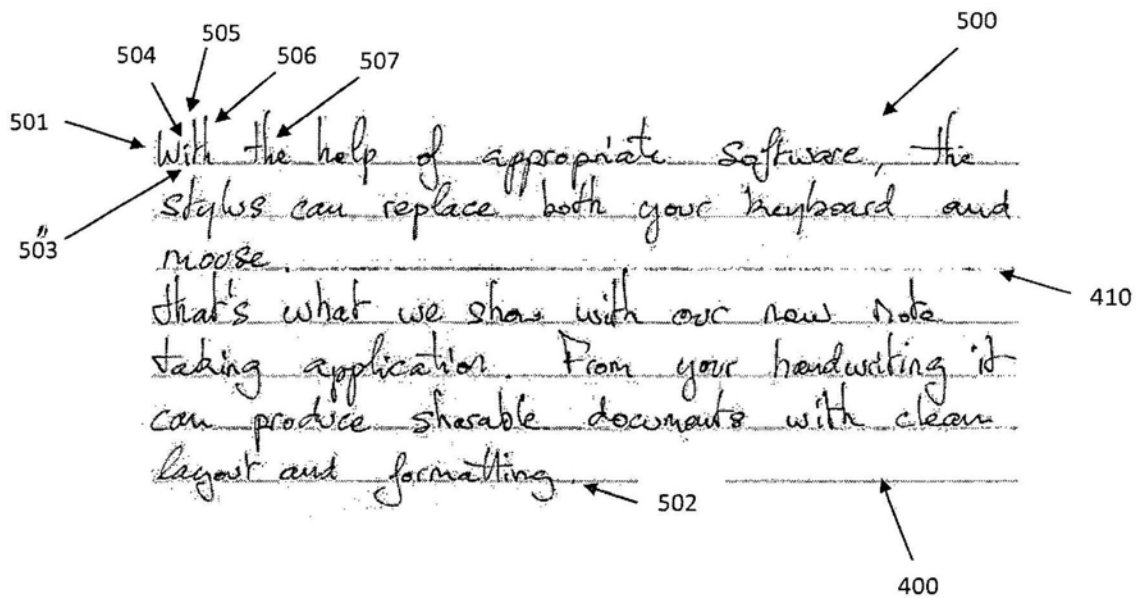 505
500
504
506
507
501
With the help of appropriate software, the
stylus can replace both your keyboard and
503
mouse.
410
that's what we show with our new note
taking application. From your handwriting it
can produce sharable documents with clean
layout and formatting.
502
400